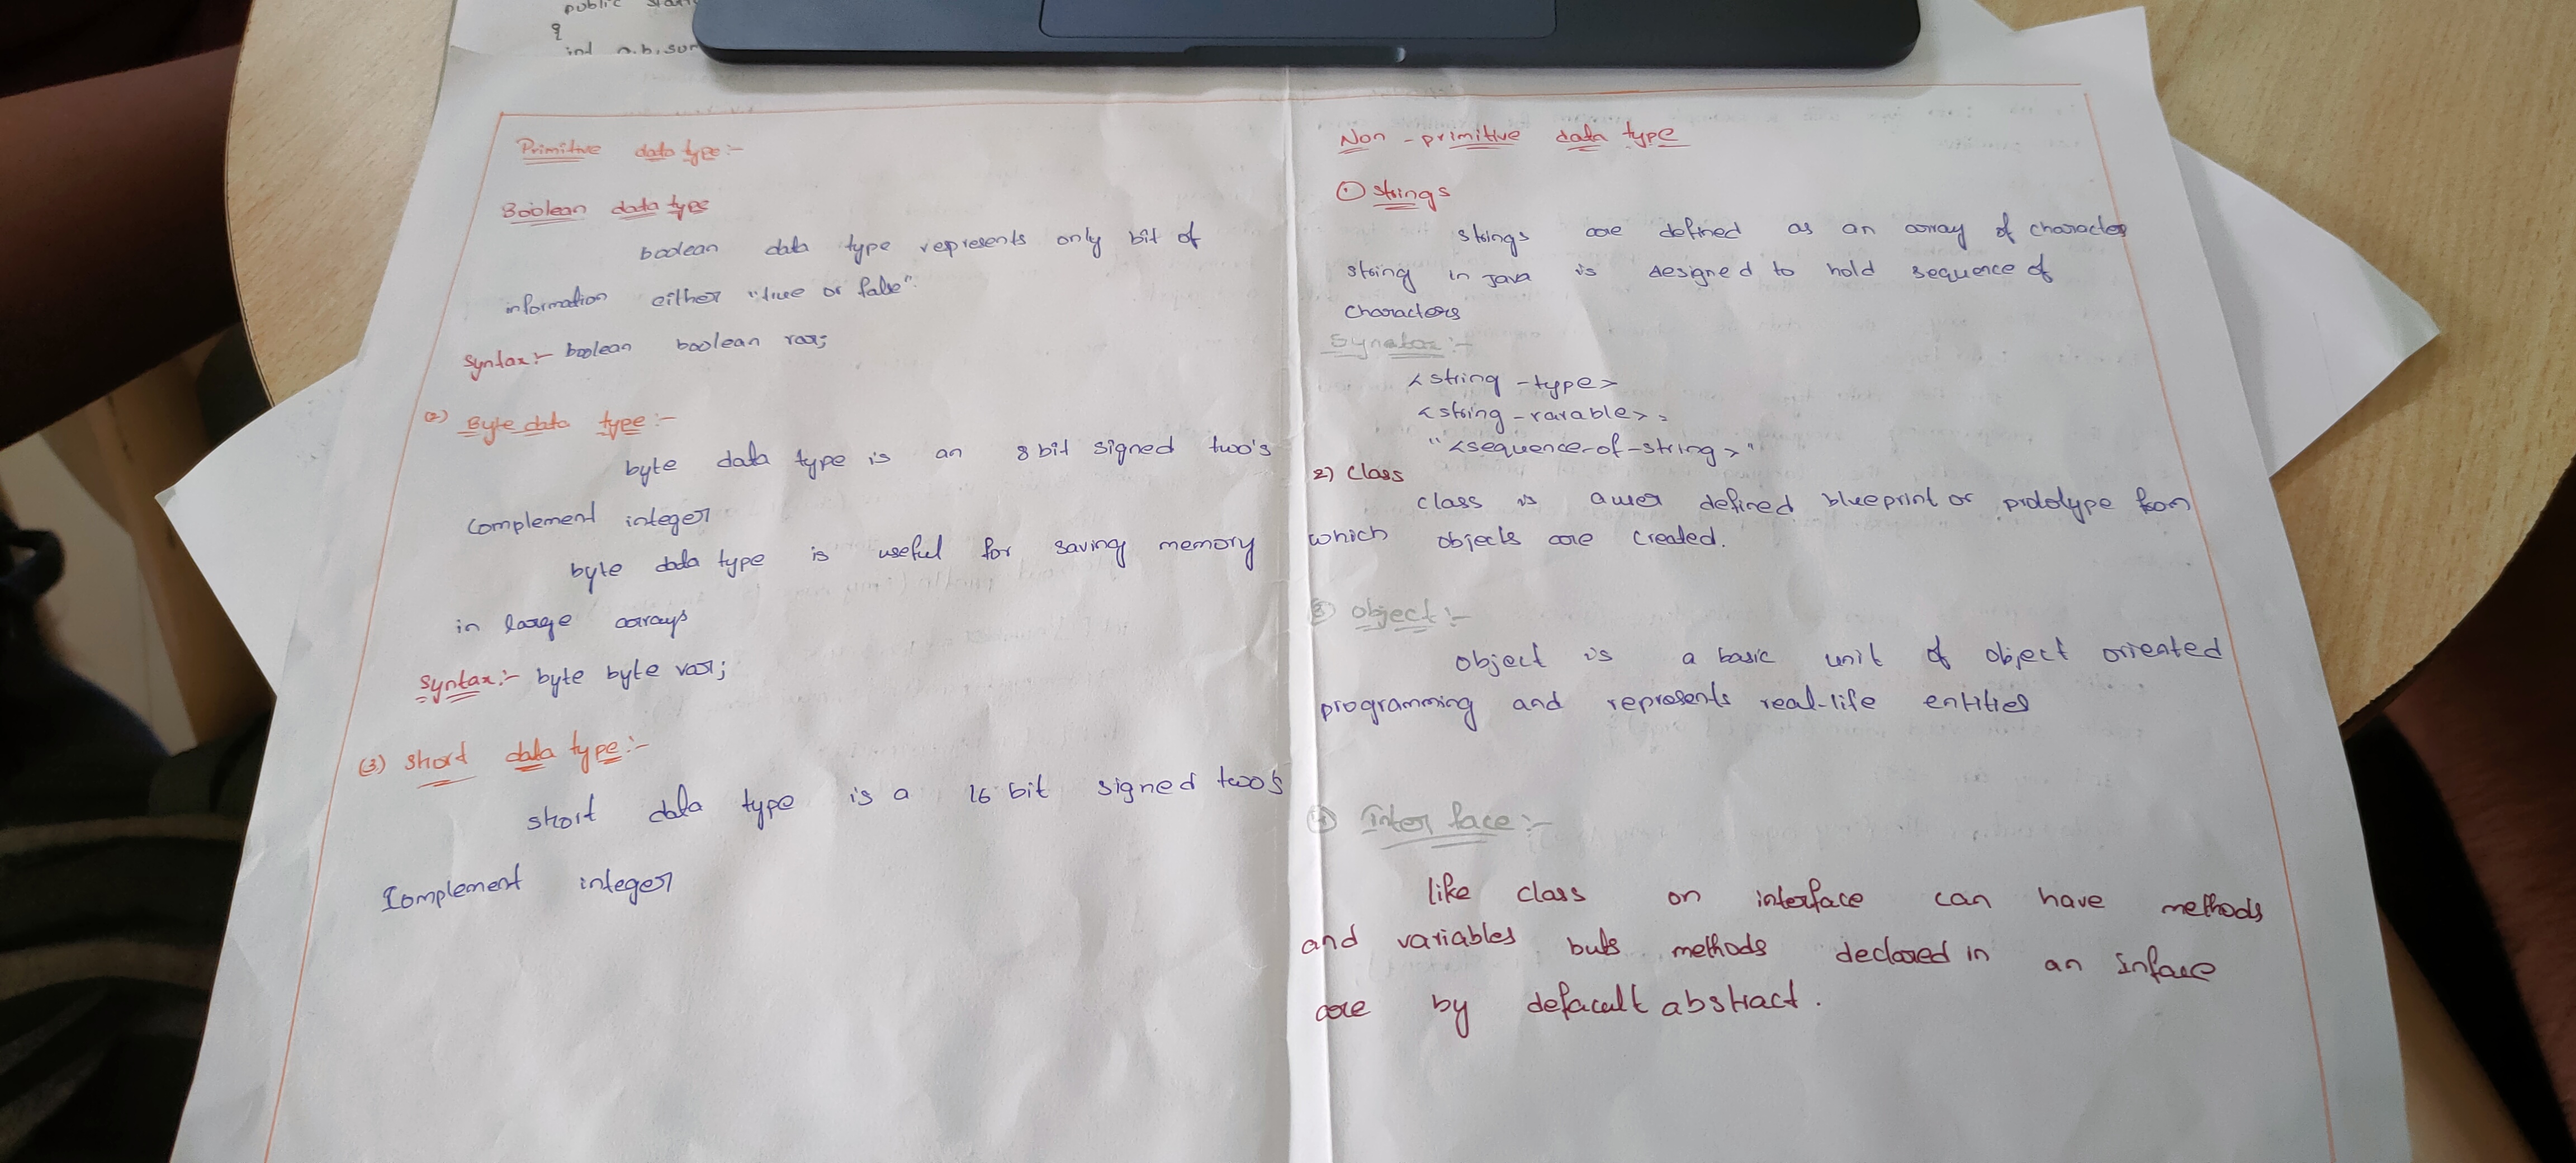 public
{
int a.b.sum
Primitive data type:-
Boolean data type
boolean data type represents only bit of
information either "true or false".
Syntax:- boolean boolean var;
(2) Byte data type:-
byte data type is an 8 bit signed two's
complement integer
byte data type is useful for saving memory
in large arrays
Syntax:- byte byte var;
(3) short data type:-
short data type is a 16 bit signed two's
complement integer
Non-primitive data type
① strings
strings are defined as an array of character
string in Java is designed to hold sequence of
characters
Synatax:-
<string -type>
<string -varable> =
"<sequence-of-string>"
2) Class
class is a user defined blueprint or prototype from
which objects are created.
③ object:-
object is a basic unit of object oriented
programming and represents real-life entities
④ Inter face:-
like class on interface can have methods
and variables buts methods declared in an inface
are by defacult abstract.